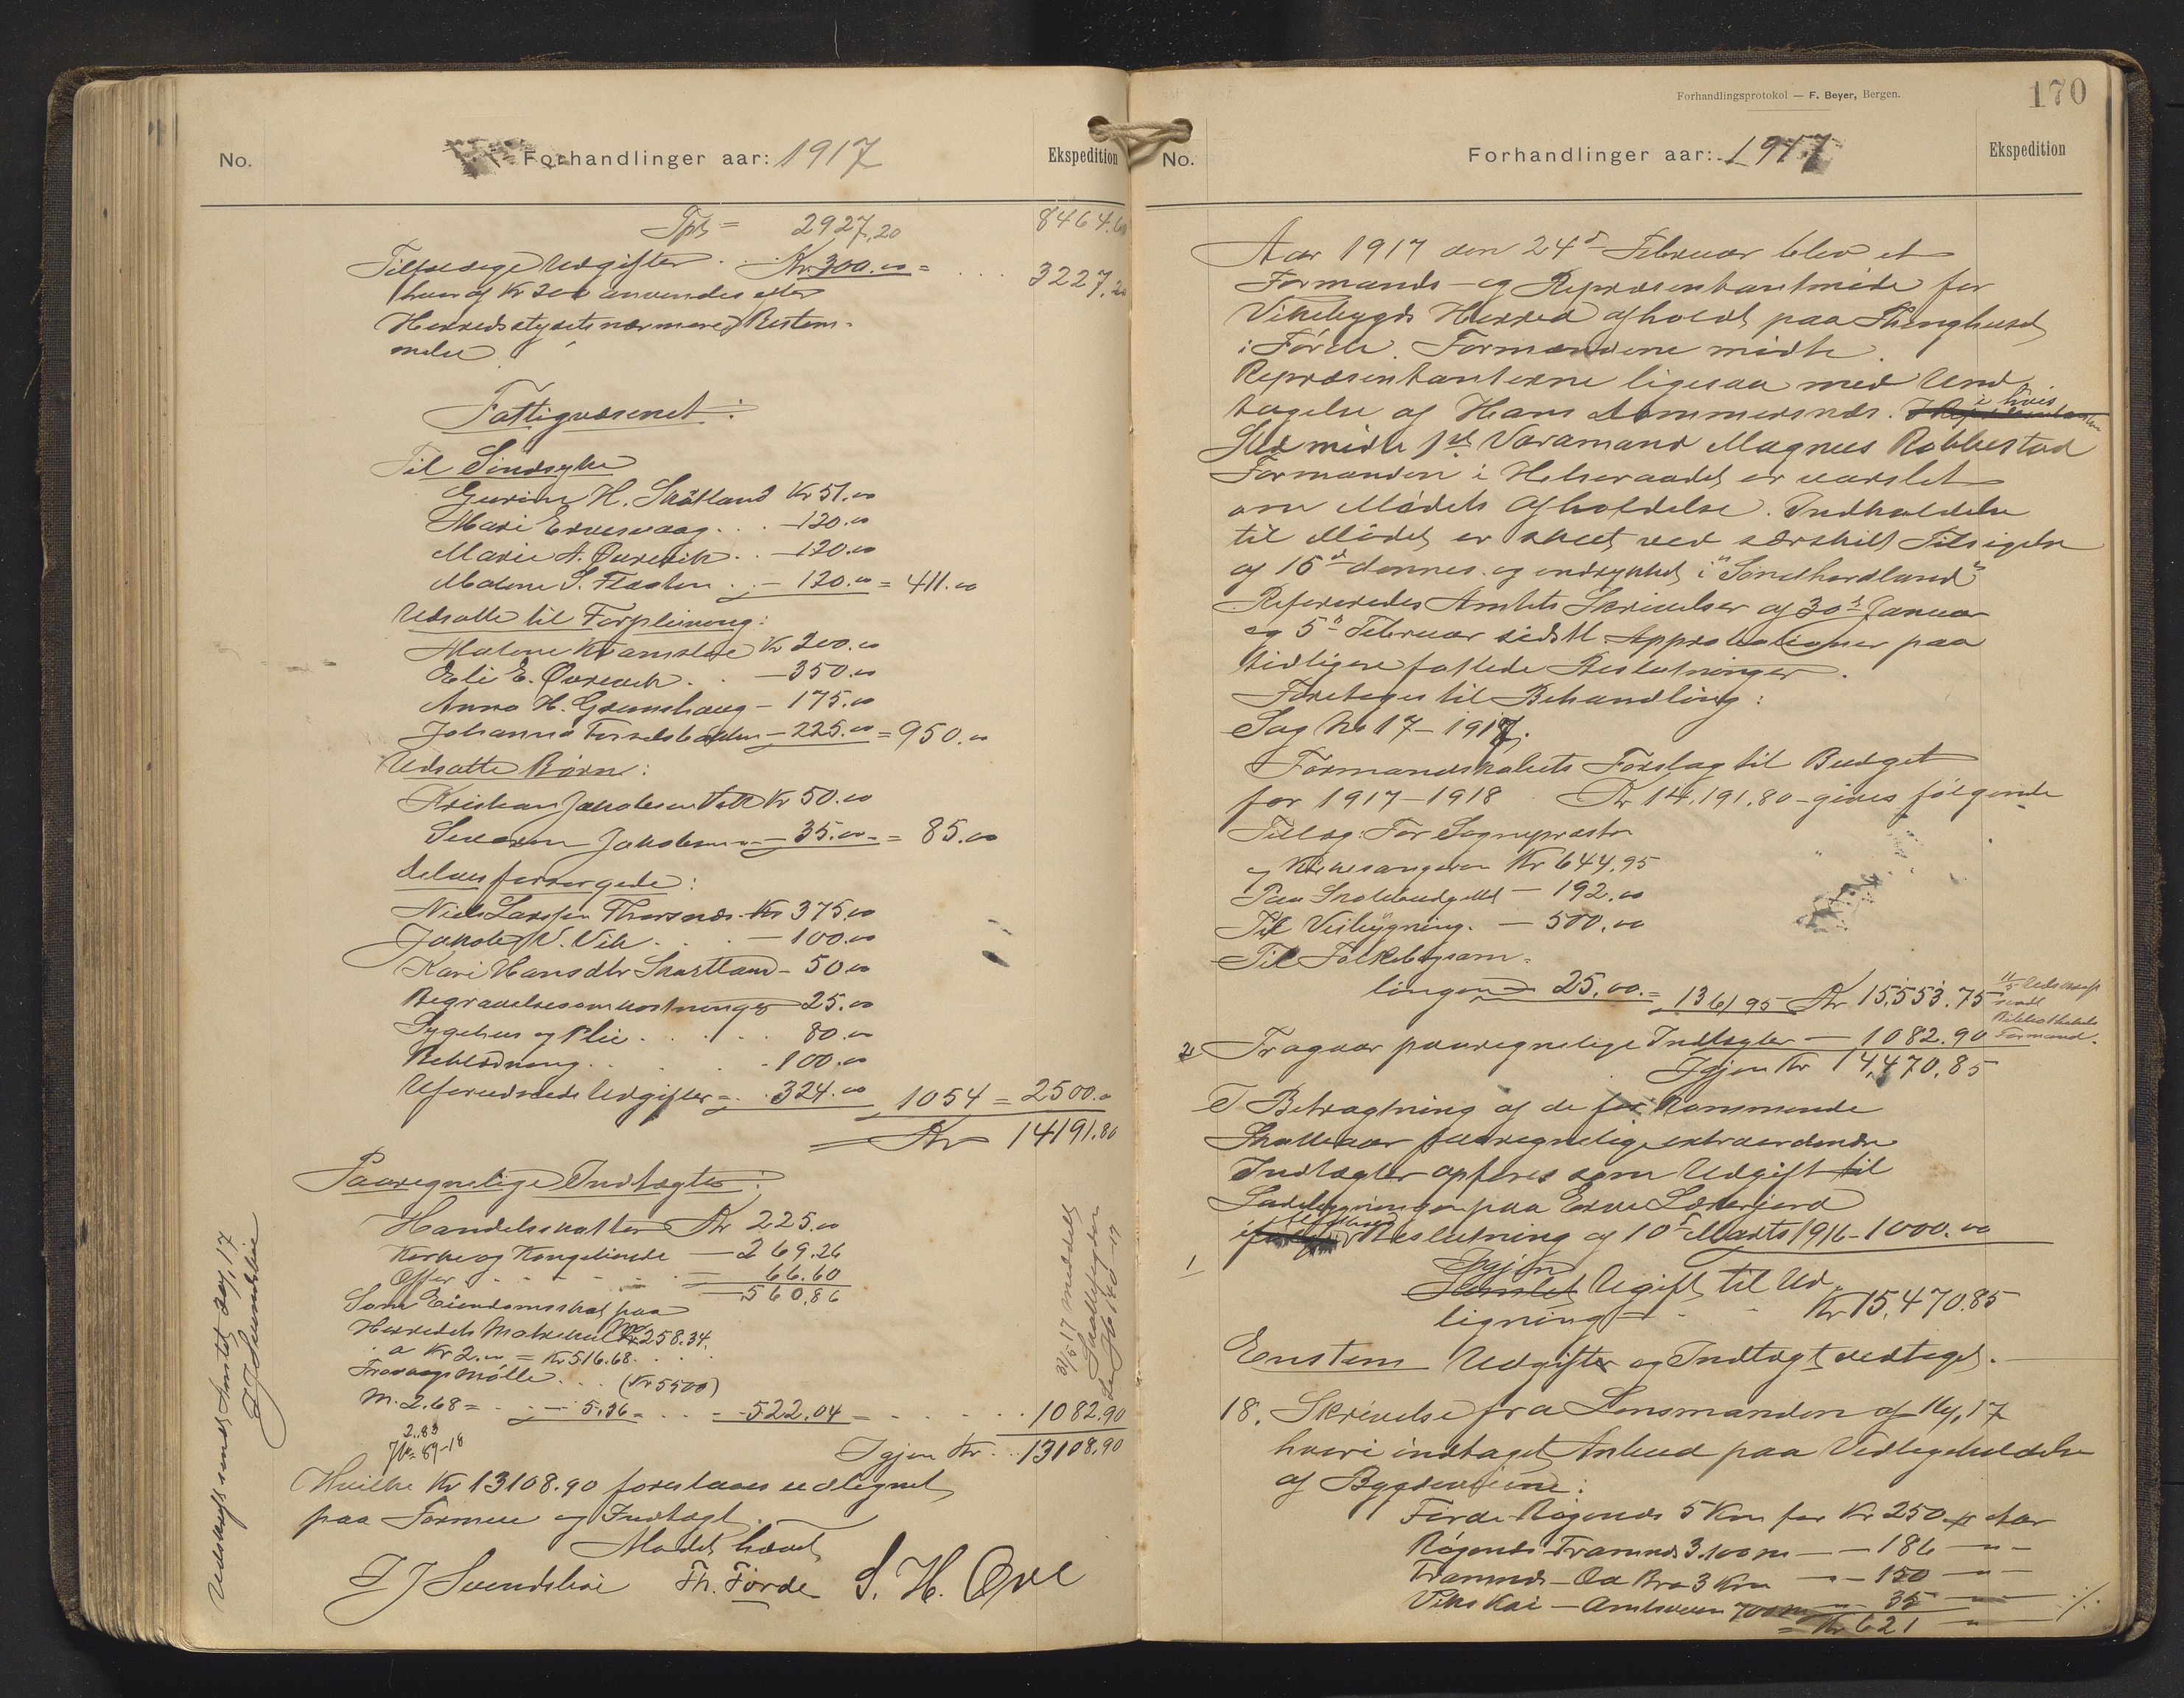 No.
Forhandlinger aar: 1917
Ekspedition
Tpt = 2927.20 8464.60
Tilfældige Udgifter . . Kr 300.00 = . . . 3227.20
hvoraf Kr 200 anvendes efter
Herredsstyrets nærmere Bestem-
melse
Fattigvæsenet:
Til Sindsyke
H. Skåtland Kr 51.00
Mari . . - 120.00
Marie A. Øvrevik . . - 120.00
Malene S. . - 120.00 = 411.00
Udsatte til Forpleining:
Malene Kr 200.00
Eli E. Øvrevik . . - 350.00
Anna H. Grønshaug - 175.00
Johanna - 225.00 = 950.00
Udsatte Børn:
Kristian Jakobsen Kr 50.00
Jakobsen - 35.00 = 85.00
Delvis forsørgede:
Niels Larsen Thorsnæs Kr 375.00
Jakob V. Vik . . . - 100.00
Kari Hansdtr - 50.00
Begravelsesomkostninger 25.00
Sygehus og Pleie . . . . 80.00
Beklædning . . . . . 100.00
Uforudseede Udgifter = . 324.00 1054 = 2500.00
Kr 14191.80
Paaregnelige Indtægter:
Handelsskatter Kr 225.00
Kirke og Kongetiende - 269.26
Offer . . . . . 66.60
560.86
Som Eiendomsskat paa
Herredets Matrikul 258.34
a Kr 2.00 = Kr 516.68 . . .
Mølle . . . (Kr 5500)
M. 2.68 = . . - 5.36 = . . - 522.04 = . . . . . 1082.90
2.83
89-18
Igjen Kr . . 13108.90
Hvilke Kr 13108.90 foreslaaes udlignet
paa Formue og Indtægt.
Mødet hævet
J J Svendsbøe Th. Førde S. H. Øvre
Udskrift sendt Amtet 17
J J Svendsbøe
17 meddelt
Skattefogden
Forhandlingsprotokol — F. Beyer, Bergen.
170
No.
Forhandlinger aar: 1917
Ekspedition
Aar 1917 den 24de Februar blev et
Formands- og Repræsentantmøde for
Vikebygd Herred afholdt paa Thinghuset
i Førde. Formændene mødte.
Repræsentanterne ligesaa med Und-
tagelse af Hans Dommersnæs. i hvis
Sted mødte 1ste Varamand Magnus Robbestad
Formanden i Helseraadet er varslet
om Mødets Afholdelse. Indkaldelse
til Mødet er skeet ved særskilt Tilsigelse
af 15de dennes og indrykket i "Søndhordland"
Refereredes Amtets Skrivelser af 30te Januar
og 5te Februar sidstl. Approbationer paa
tidligere fattede Beslutninger.
Foretages til Behandling:
Sag No 17 - 1917.
Formandskabets Forslag til Budget
for 1917-1918 Kr 14.191.80 - gives følgende
Tillæg: For Sognepræsten
og Kirkesangeren Kr 644.95
Paa Skolebudgettet - 192.00
Til Veibygning. - 500.00
Til Folkebogsam-
lingen = 25.00 = 1361.95 Kr 15,553.75
Udskrift
sendt
Bibliothekets
Formand.
2) Fragaar paaregnelige Indtægter - 1082.90
Igjen Kr 14,470.85
I Betragtning af de for kommende
Skatteaar paaregnelige extraordinære
Indtægter opføres som Udgift til
paa Lærerjord
Beslutning af 10de Marts 1916 - 1000.00
1
Igjen
Samlet Ugift til Ud-
ligning - . . Kr 15,470.85
Enstem Udgifter og Indtægt vedtaget.
18. Skrivelse fra Lensmanden af 17
hvori indtaget Anbud paa Vedligeholdelse
af Bygdeveiene:
Førde-Røgenæs 5 Km for Kr 250 pr Aar
Røgenæs-Framnæs 3.100 m - - 186 - " -
Framnæs - Bro 3 Km - " - 150 - " -
Viks Kai - Amtsveien 700 m - " - 35 - " -
= Kr 621 "
./.